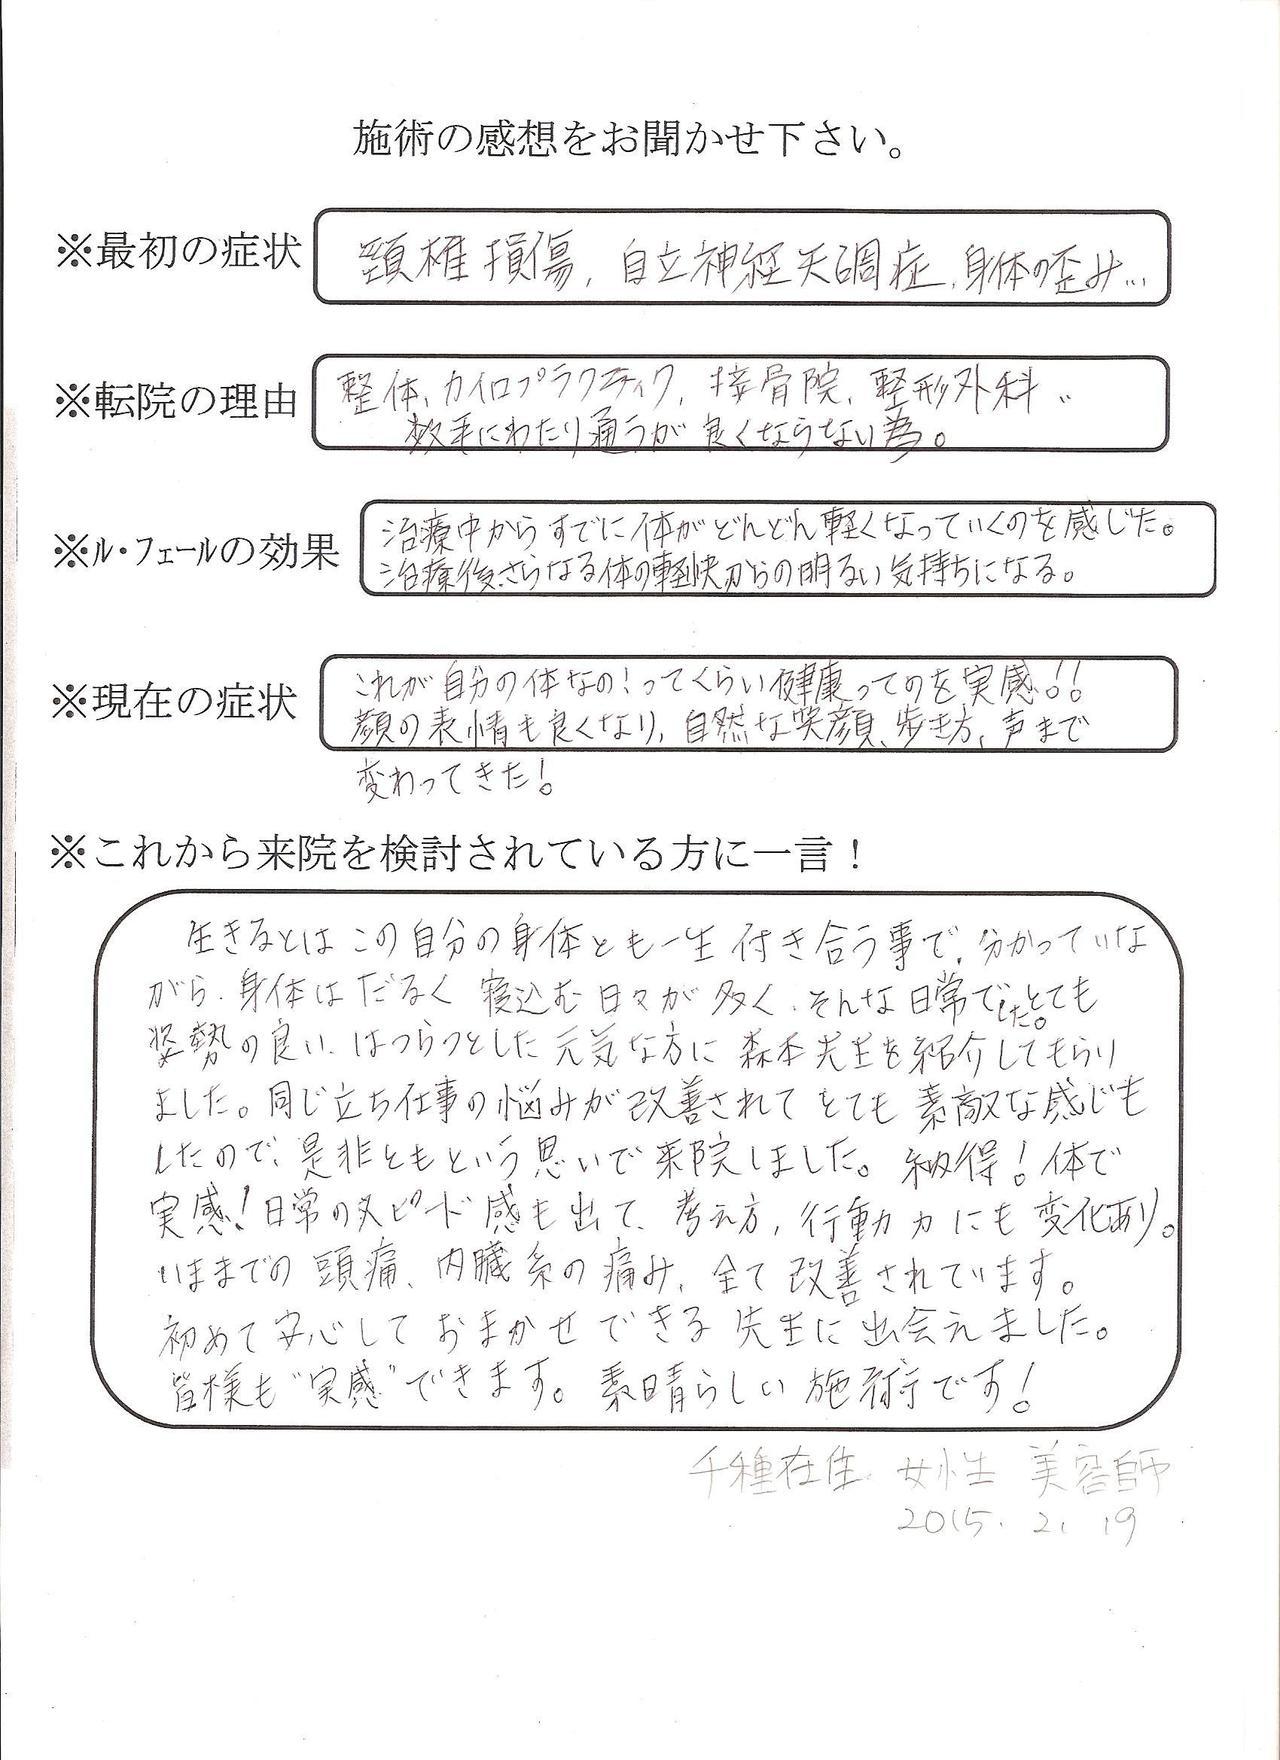 施術の感想をお聞かせ下さい。
※最初の症状
頚椎損傷, 自立神経失調症, 身体の歪み…
※転院の理由
整体, カイロプラクティク, 接骨院, 整形外科‥
数年にわたり通うが良くならない為。
※ル・フェールの効果
治療中からすでに体がどんどん軽くなっていくのを感じた。
治療後さらなる体の軽快からの明るい気持ちになる。
※現在の症状
これが自分の体なの!ってくらい健康ってのを実感!!
顔の表情も良くなり, 自然な笑顔、歩き方, 声まで
変わってきた!
※これから来院を検討されている方に一言！
生きるとはこの自分の身体とも一生付き合う事で, 分かっていな
がら、身体はだるく寝込む日々が多く、そんな日常でした。とても
姿勢の良い、はつらつとした元気な方に森本先生を紹介してもらり
ました。同じ立ち仕事の悩みが改善されてとても素敵な感じも
したので、是非ともという思いで来院しました。納得!体で
実感!日常のスピード感も出て、考え方, 行動力にも変化あり。
いままでの頭痛、内臓系の痛み, 全て改善されています。
初めて安心しておまかせできる先生に出会えました。
皆様も“実感”できます。素晴らしい施術です!
千種在住 女性 美容師
2015. 2. 19